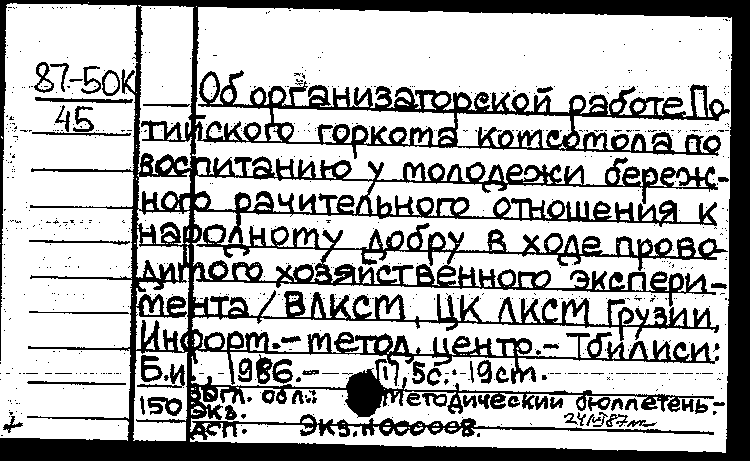 87-50к
45
Об организаторской работе По-
тийского горкома комсомола по
воспитанию у молодежи береж-
ного рачительного отношения к
народному добру в ходе прово-
димого хозяйственного экспери-
мента / ВЛКСМ, ЦК ЛКСМ Грузии,
Информ.-метод. центр.- Тбилиси:
Б.и., 1986.- [1], 5с.; 19см.
Загл. обл.: Методический бюллетень.-
150 экз.
ДСП. Экз.N000008.